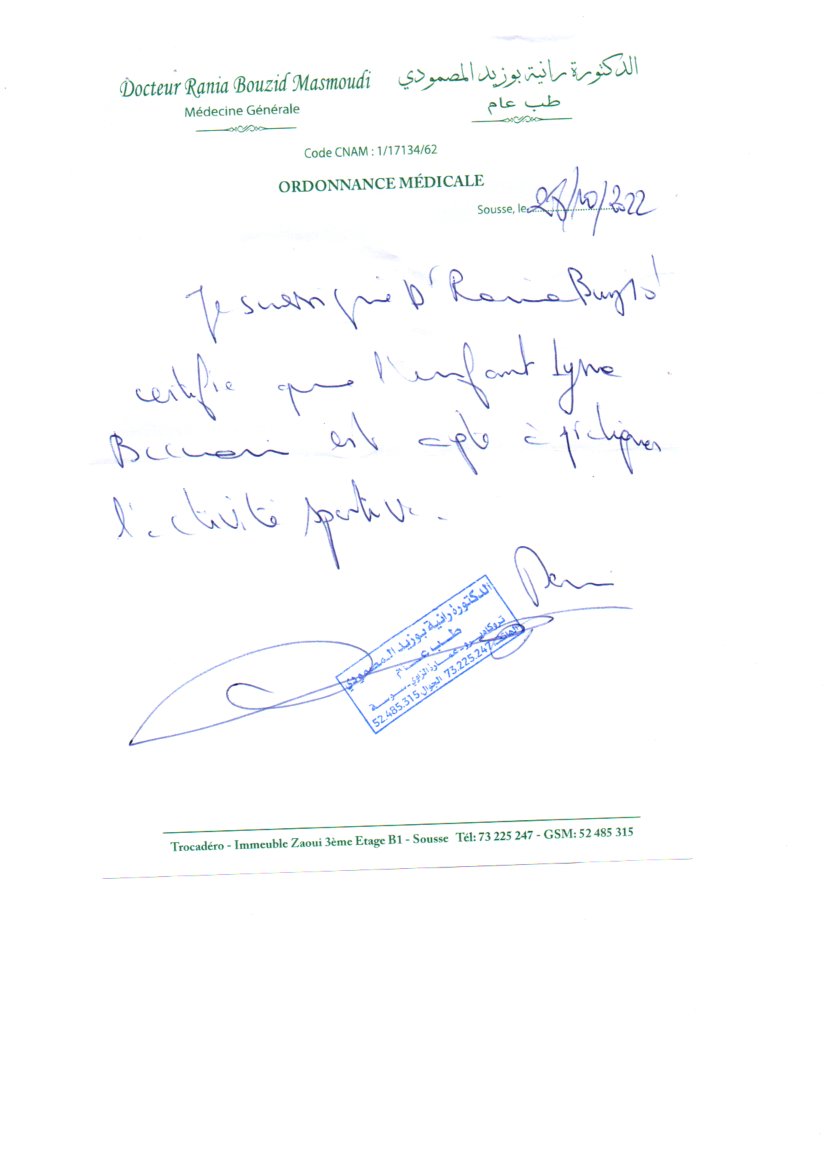 Docteur Rania Bouzid Masmoudi
Médecine Générale
الدكتورة رانية بوزيد المصمودي
طب عام
Code CNAM : 1/17134/62
ORDONNANCE MÉDICALE
Sousse, le /10/2022
Je sussigné Dr Rania Bouzid
certifie que l'enfant Lyne
est apte à pratiquer
l'activité sportive.
الدكتورة رانية بوزيد المصمودي
طب عام
تروكاديرو - عمارة الزاوي - سوسة
الهاتف: 73.225.247 الجوال: 52.485.315
Trocadéro - Immeuble Zaoui 3ème Etage B1 - Sousse Tél: 73 225 247 - GSM: 52 485 315